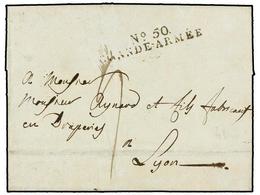 No 50.
GRANDE-ARMÉE
A Monsieur
Monsieur Aynard et fils fabricant
en Draperies
a
Lyon